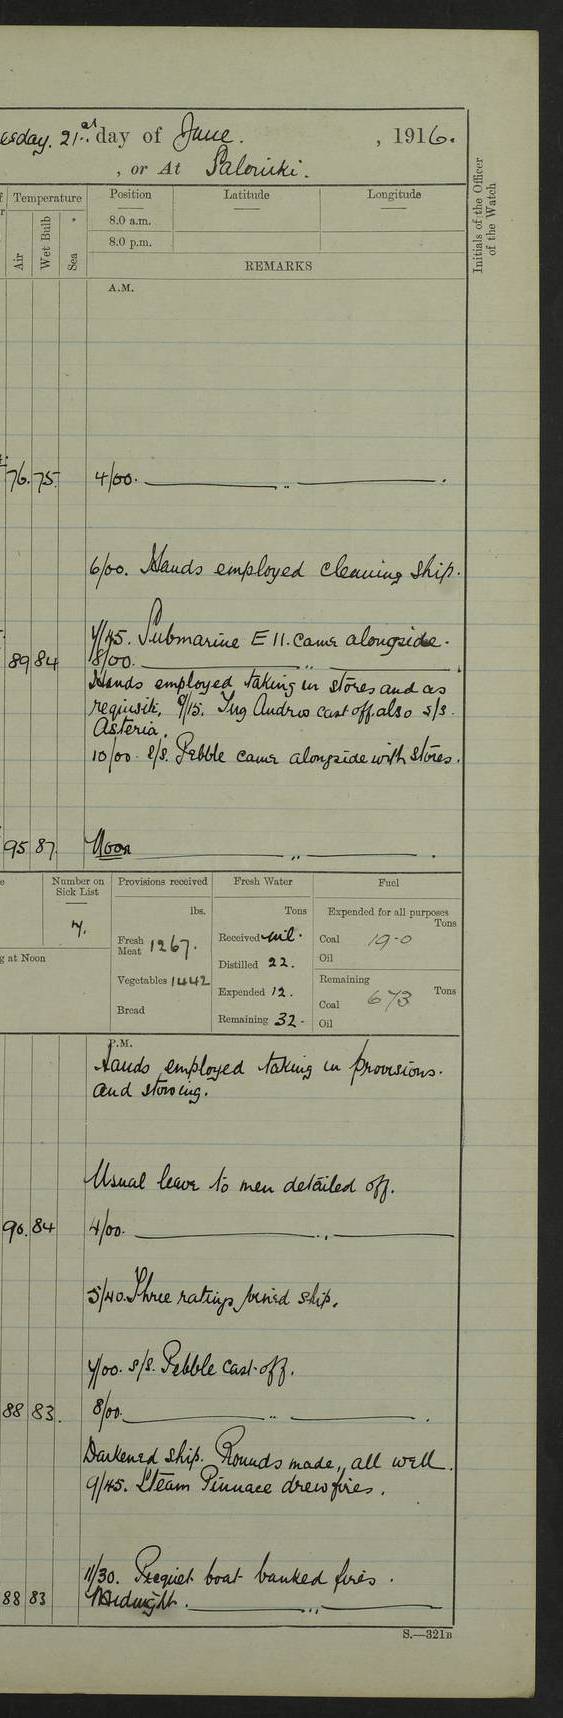 esday. 21.st day of June. , 1916.
, or At Salonicki.
Temperature Position Latitude Longitude
Air Wet Bulb Sea
8.0 a.m.
8.0 p.m.
Initials of the Officer of the Watch
REMARKS
A.M.
76. 75. 4/00. ———— " ———— .
6/00. Hands employed cleaning ship.
7/45. Submarine E 11. came alongside.
89 84 8/00. ———— " ———— .
Hands employed taking in stores and as
requisite, 9/15. Tug Andros cast off. also s/s.
Asteria.
10/00. s/s. Pebble came alongside with stores.
95 87 Noon ———— " ———— .
Number on Sick List
7.
g at Noon
Provisions received
lbs.
Fresh Meat 1267.
Vegetables 1442
Bread
Fresh Water
Tons
Received nil.
Distilled 22.
Expended 12.
Remaining 32.
Fuel
Expended for all purposes
Tons
Coal 19-0
Oil
Remaining
Tons
Coal 673
Oil
P.M.
Hands employed taking in provisions.
and stowing.
Usual leave to men detailed off.
90. 84 4/00. ———— " ————
5/40. Three ratings joined ship.
7/00. s/s. Pebble cast off.
88 83. 8/00. ———— " ———— .
Darkened ship. Rounds made, all well.
9/45. Steam Pinnace drew fires.
11/30. Picquet boat banked fires.
88 83 Midnight. ———— " ————
S.—321B